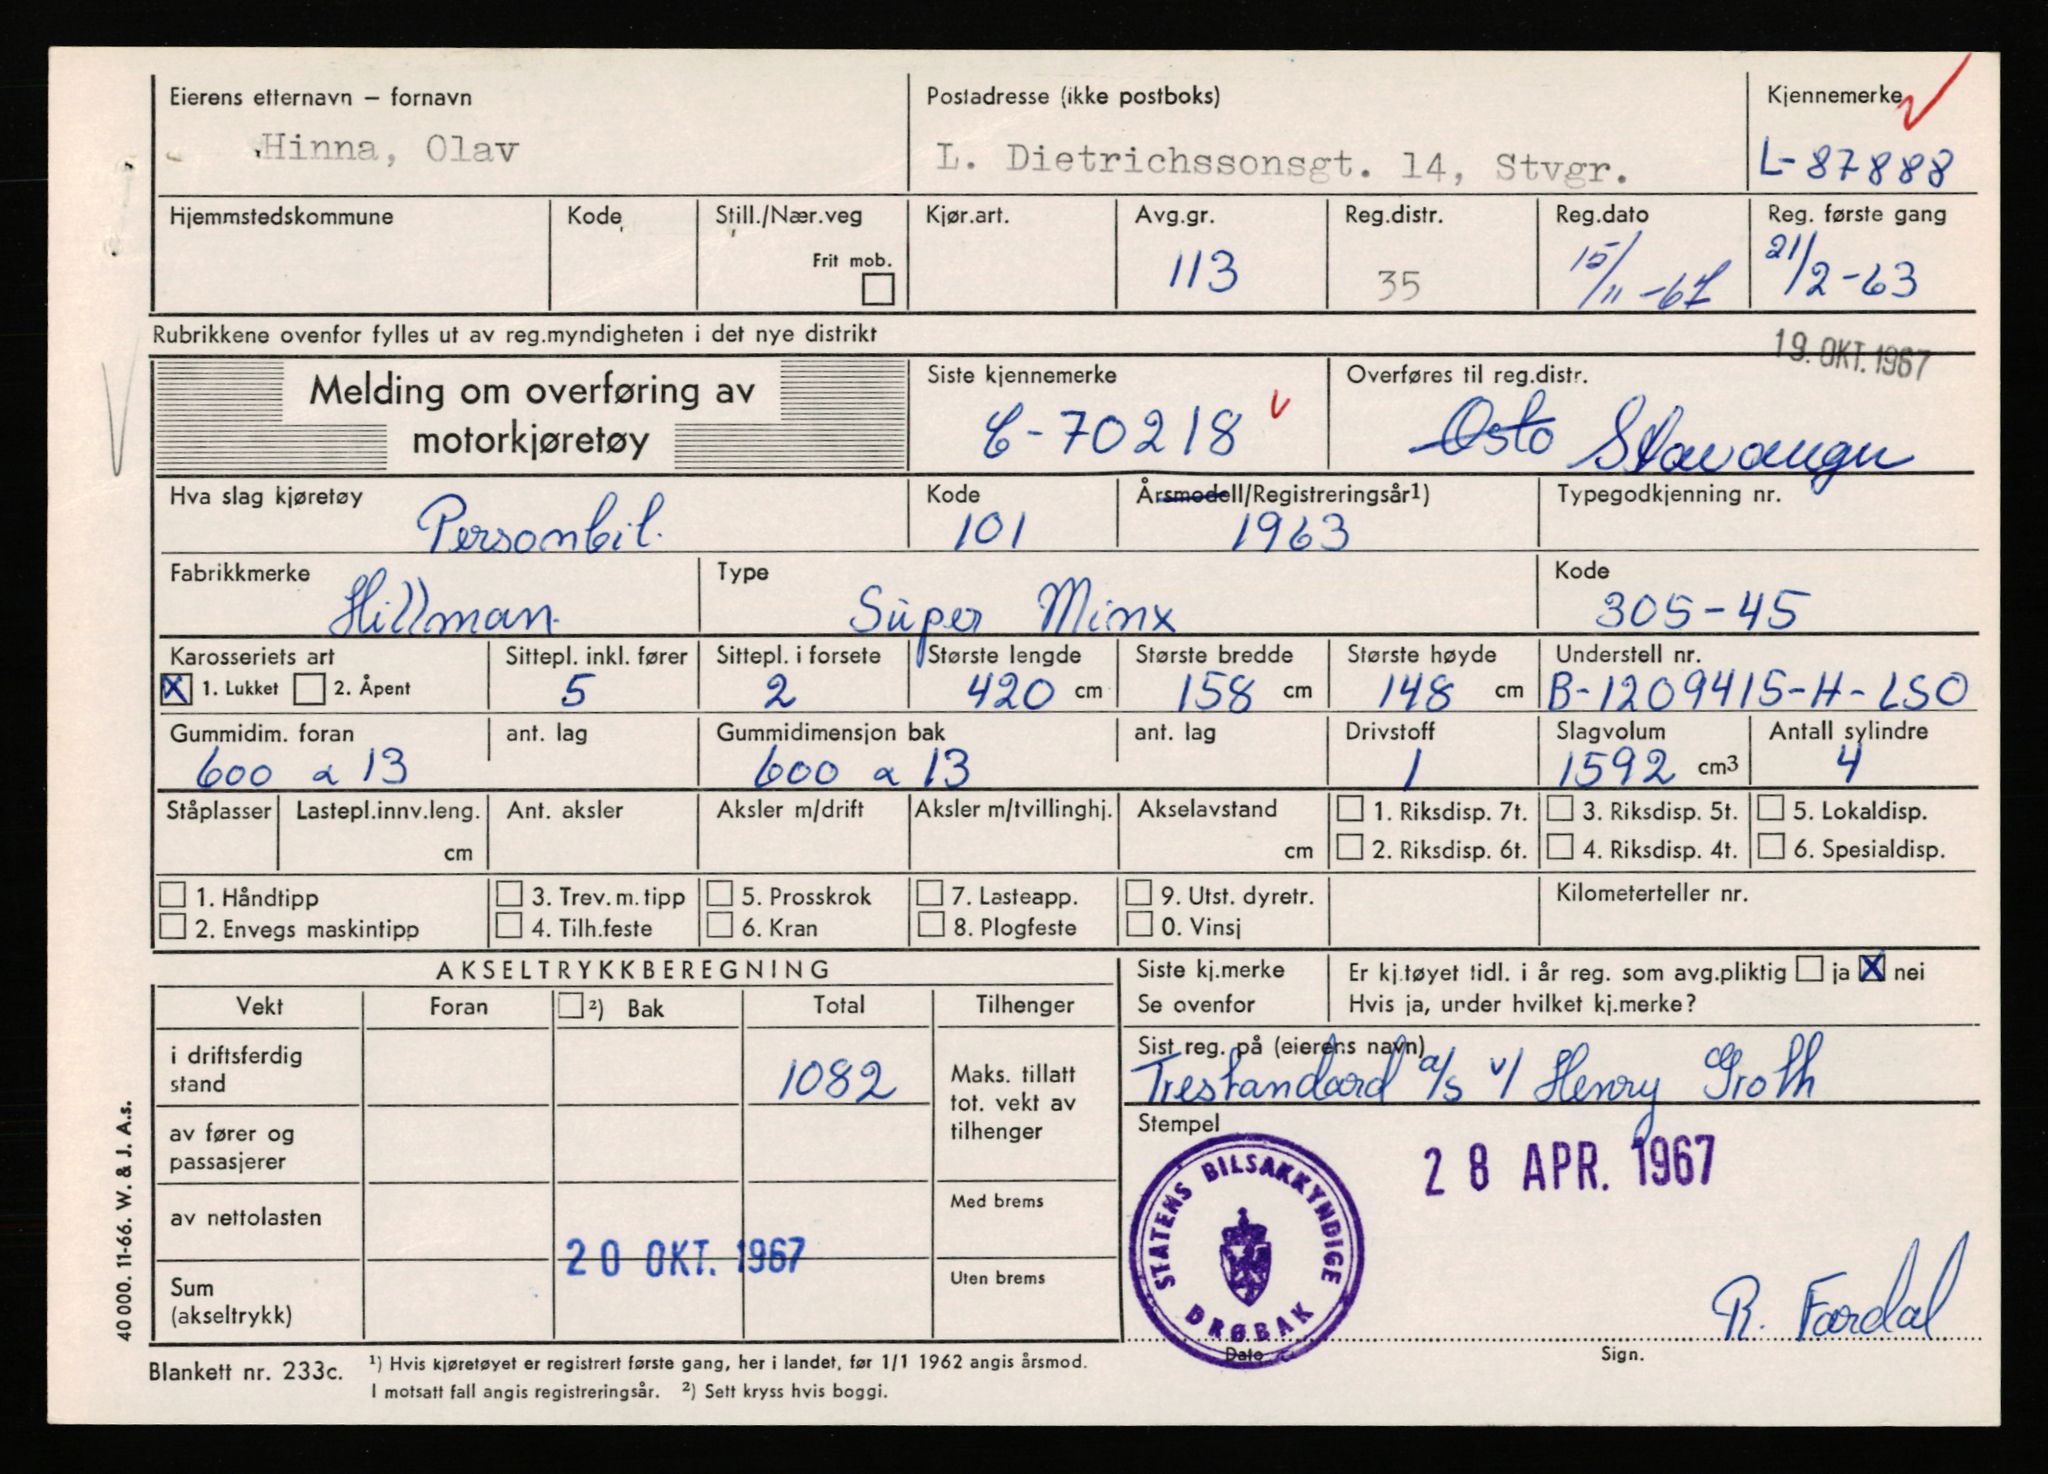 Eierens etternavn – fornavn Postadresse (ikke postboks) Kjennemerke
Hinna, Olav L. Dietrichssonsgt. 14, Stvgr. L-87888
Hjemmstedskommune Kode Still./Nær.veg Kjør.art. Avg.gr. Reg.distr. Reg.dato Reg. første gang
Frit mob. 113 35 15/11-67 21/2-63
Rubrikkene ovenfor fylles ut av reg.myndigheten i det nye distrikt
19. OKT. 1967
Melding om overføring av Siste kjennemerke Overføres til reg.distr.
motorkjøretøy C-70218 Oslo Stavanger
Hva slag kjøretøy Kode Årsmodell/Registreringsår1) Typegodkjenning nr.
Personbil. 101 1963
Fabrikkmerke Type Kode
Hillman Super Minx 305-45
Karosseriets art Sittepl. inkl. fører Sittepl. i forsete Største lengde Største bredde Største høyde Understell nr.
X 1. Lukket 2. Åpent 5 2 420 cm 158 cm 148 cm B-1209415-H-LSO
Gummidim. foran ant. lag Gummidimensjon bak ant. lag Drivstoff Slagvolum Antall sylindre
600 x 13 600 x 13 1 1592 cm3 4
Ståplasser Lastepl.innv.leng. Ant. aksler Aksler m/drift Aksler m/tvillinghj. Akselavstand 1. Riksdisp. 7t. 3. Riksdisp. 5t. 5. Lokaldisp.
cm cm 2. Riksdisp. 6t. 4. Riksdisp. 4t. 6. Spesialdisp.
1. Håndtipp 3. Trev. m. tipp 5. Prosskrok 7. Lasteapp. 9. Utst. dyretr. Kilometerteller nr.
2. Envegs maskintipp 4. Tilh.feste 6. Kran 8. Plogfeste 0. Vinsj
AKSELTRYKKBEREGNING Siste kj.merke Er kj.tøyet tidl. i år reg. som avg.pliktig ja X nei
Vekt Foran 2) Bak Total Tilhenger Se ovenfor Hvis ja, under hvilket kj.merke?
i driftsferdig Sist reg. på (eierens navn)
stand 1082 Maks. tillatt Trestandard a/s v/ Henry Groth
tot. vekt av
av fører og tilhenger Stempel
passasjerer 28 APR. 1967
av nettolasten Med brems STATENS BILSAKKYNDIGE
20 OKT. 1967
Sum Uten brems DRØBAK
(akseltrykk) R. Fardal
Dato Sign.
Blankett nr. 233c. 1) Hvis kjøretøyet er registrert første gang, her i landet, før 1/1 1962 angis årsmod.
I motsatt fall angis registreringsår. 2) Sett kryss hvis boggi.
40 000. 11-66. W. & J. A.s.